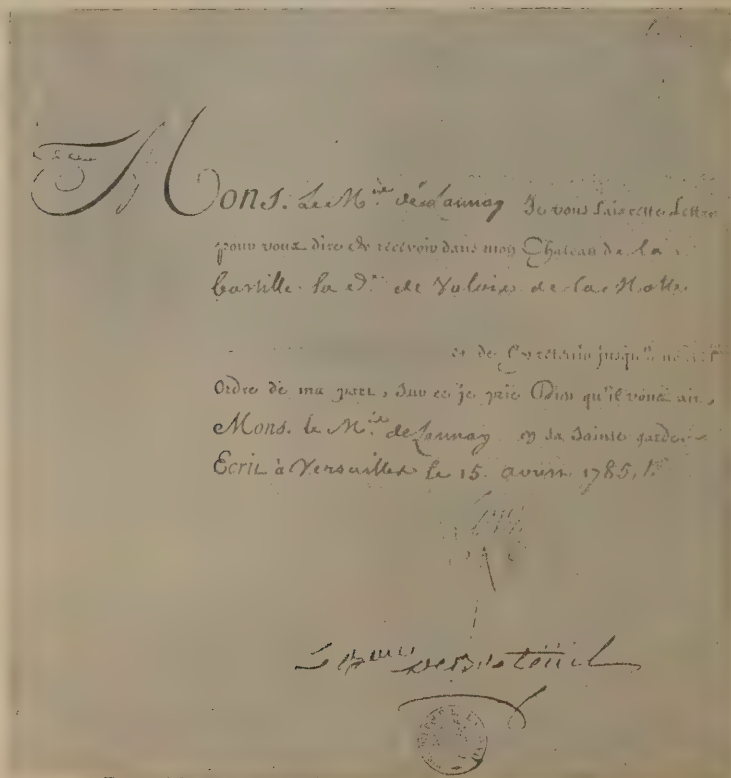 Mons. Le M.is de Launay Je vous fais cette Lettre
pour vous dire de recevoir dans mon Chateau de la
bastille la d.e de Valois de la Motte
et de l'y retenir jusqu'à
Ordre de ma part, Sur ce je prie Dieu qu'il vous ait,
Mons. le M.is de Launay en sa Sainte garde.
Ecrit à Versailles le 15. 1785.